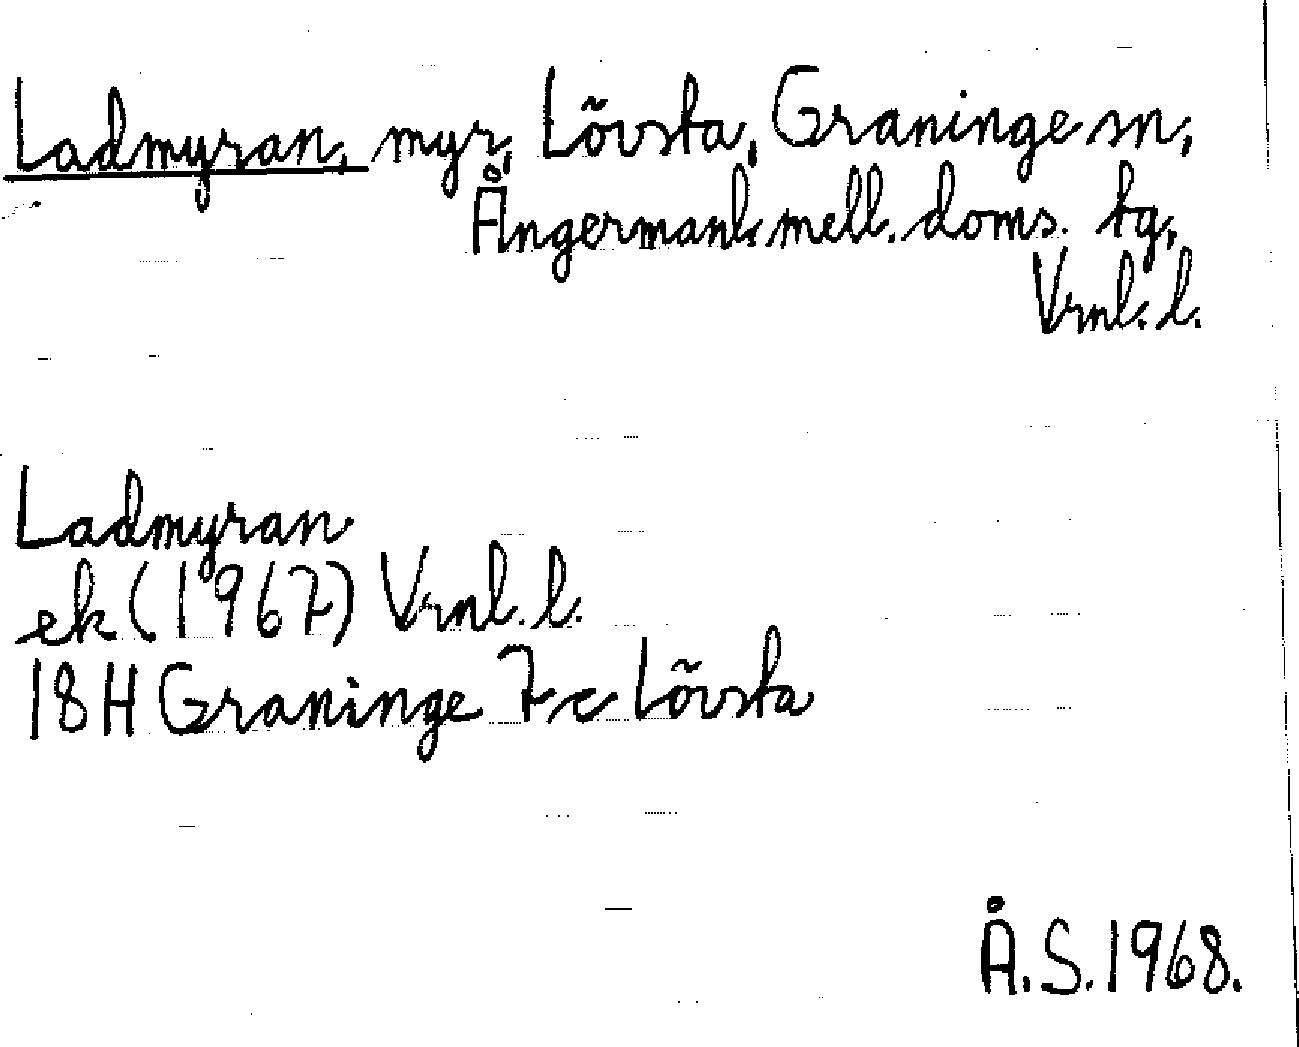 Ladmyran, myr, Lövsta, Graninge sn,
Ångermanl. mell. doms. tg,
Vrnl. l.
Ladmyran
ek (1967) Vrnl. l.
18H Graninge 7c Lövsta
Å.S. 1968.